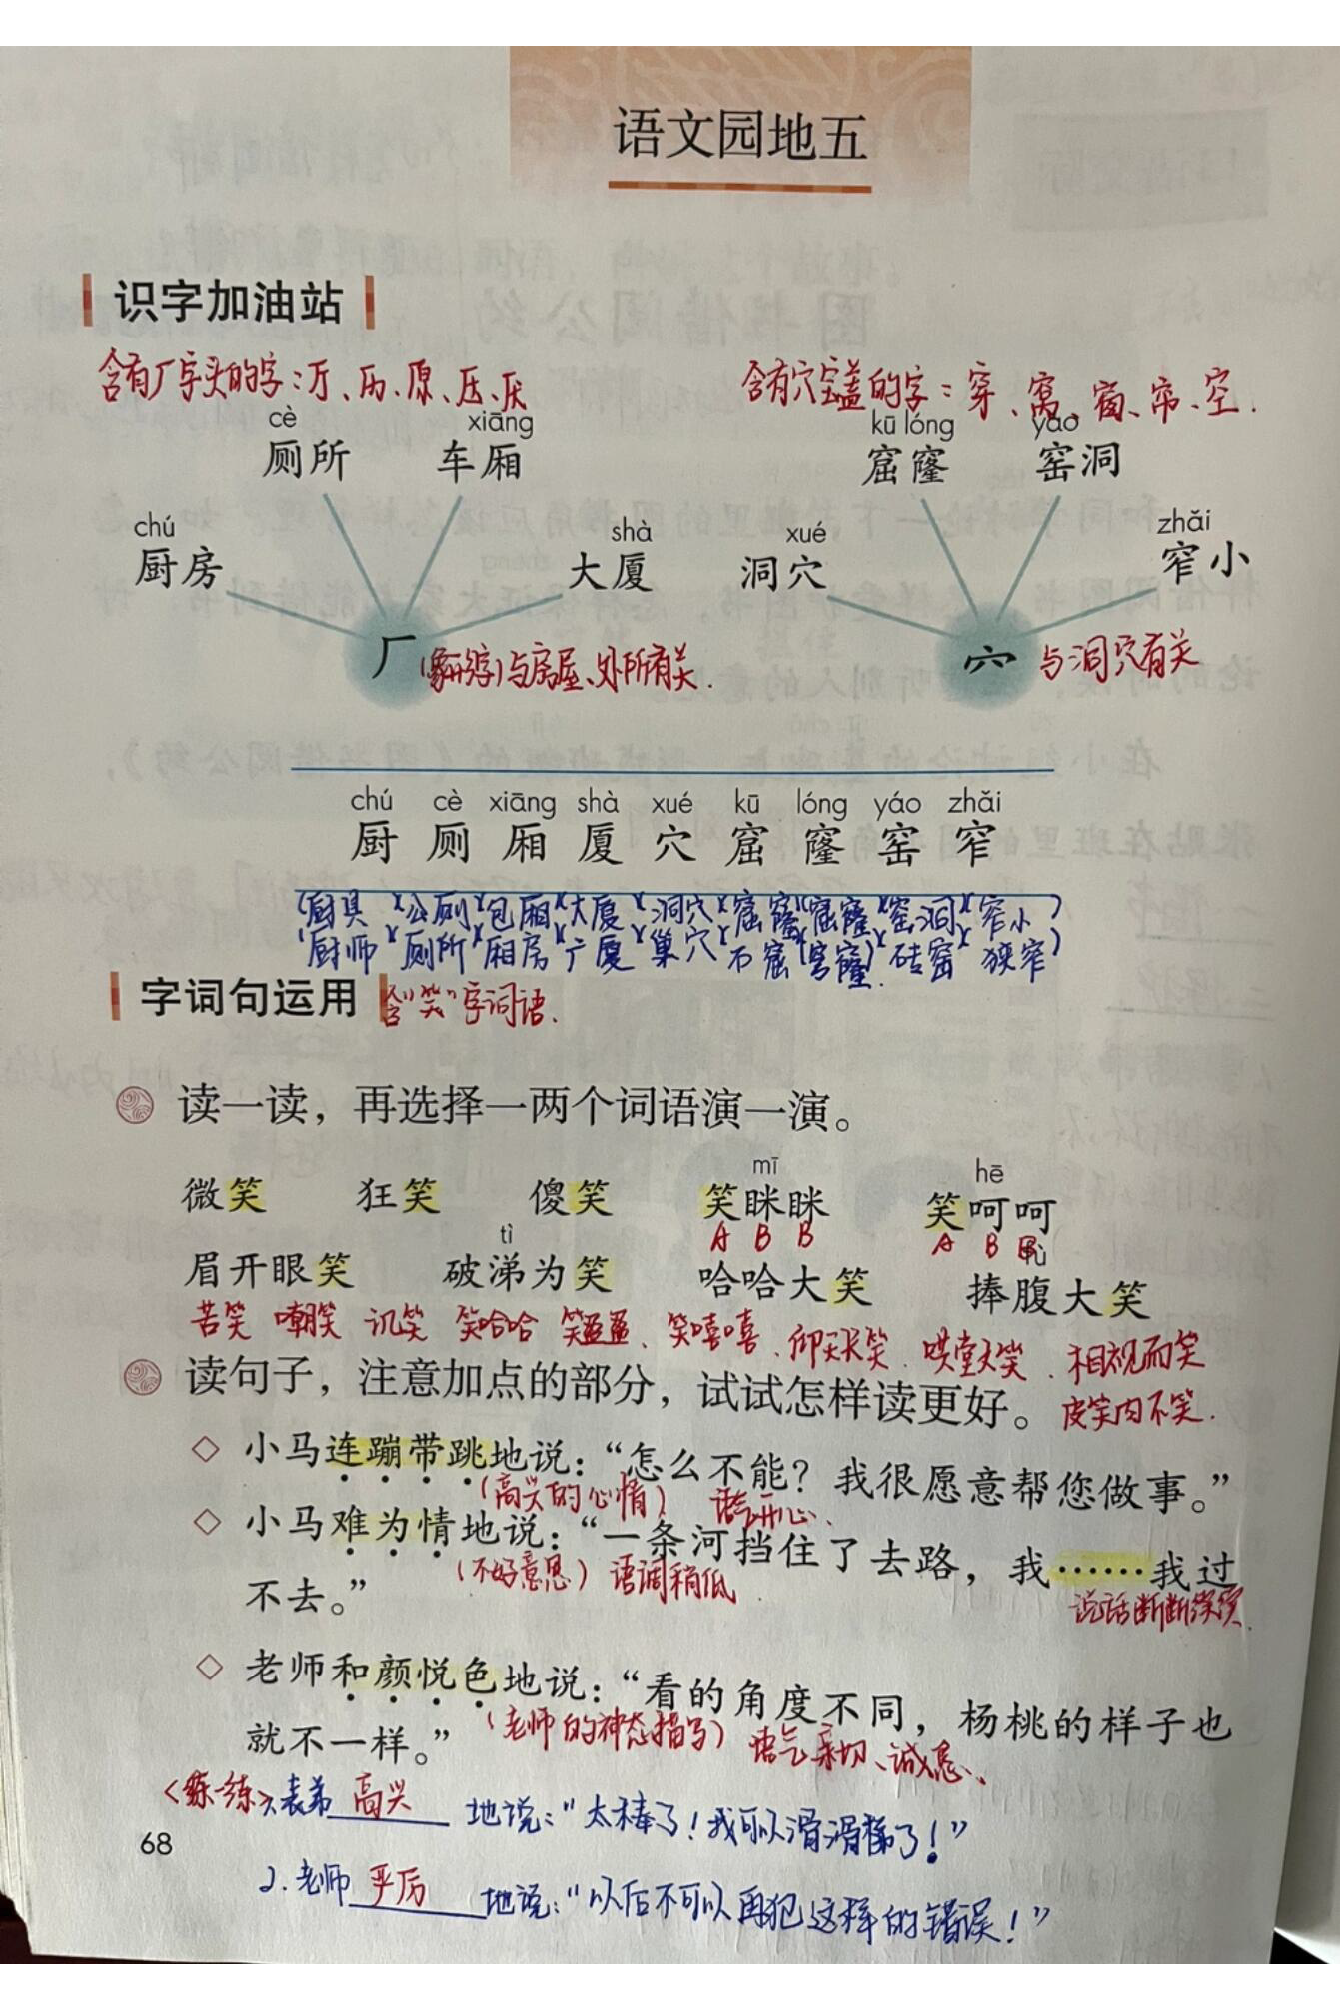 语文园地五
识字加油站
含有厂字头的字：厅、历、原、压、厌
含有穴宝盖的字：穿、窝、窗、帘、空.
cè xiāng
厕所 车厢
kū lóng yáo
窟窿 窑洞
chú shà
厨房 大厦
xué zhǎi
洞穴 窄小
厂 与房屋、处所有关.
穴 与洞穴有关
chú cè xiāng shà xué kū lóng yáo zhǎi
厨 厕 厢 厦 穴 窟 窿 窑 窄
(厨具)(公厕)(包厢)(大厦)(洞穴)(窟窿)(窟窿)(窑洞)(窄小)
(厨师)(厕所)(厢房)(广厦)(巢穴)(石窟)(穹窿)(砖窑)(狭窄)
字词句运用 含“笑”字词语.
读一读，再选择一两个词语演一演。
mī hē
微笑 狂笑 傻笑 笑眯眯 笑呵呵
A B B A B B
tì fù
眉开眼笑 破涕为笑 哈哈大笑 捧腹大笑
苦笑 嘲笑 讥笑 笑哈哈 笑盈盈、笑嘻嘻、仰天长笑. 哄堂大笑. 相视而笑
读句子，注意加点的部分，试试怎样读更好。
皮笑肉不笑.
◇ 小马连蹦带跳地说：“怎么不能？我很愿意帮您做事。”
(高兴的心情) 语气开心、
◇ 小马难为情地说：“一条河挡住了去路，我……我过
(不好意思) 语调稍低
不去。”
说话断断续续.
◇ 老师和颜悦色地说：“看的角度不同，杨桃的样子也
(老师的神态描写) 语气亲切、诚恳、
就不一样。”
<练一练>1.表弟高兴地说：“太棒了！我可以滑滑梯了！”
68
2.老师严厉地说：“以后不可以再犯这样的错误！”